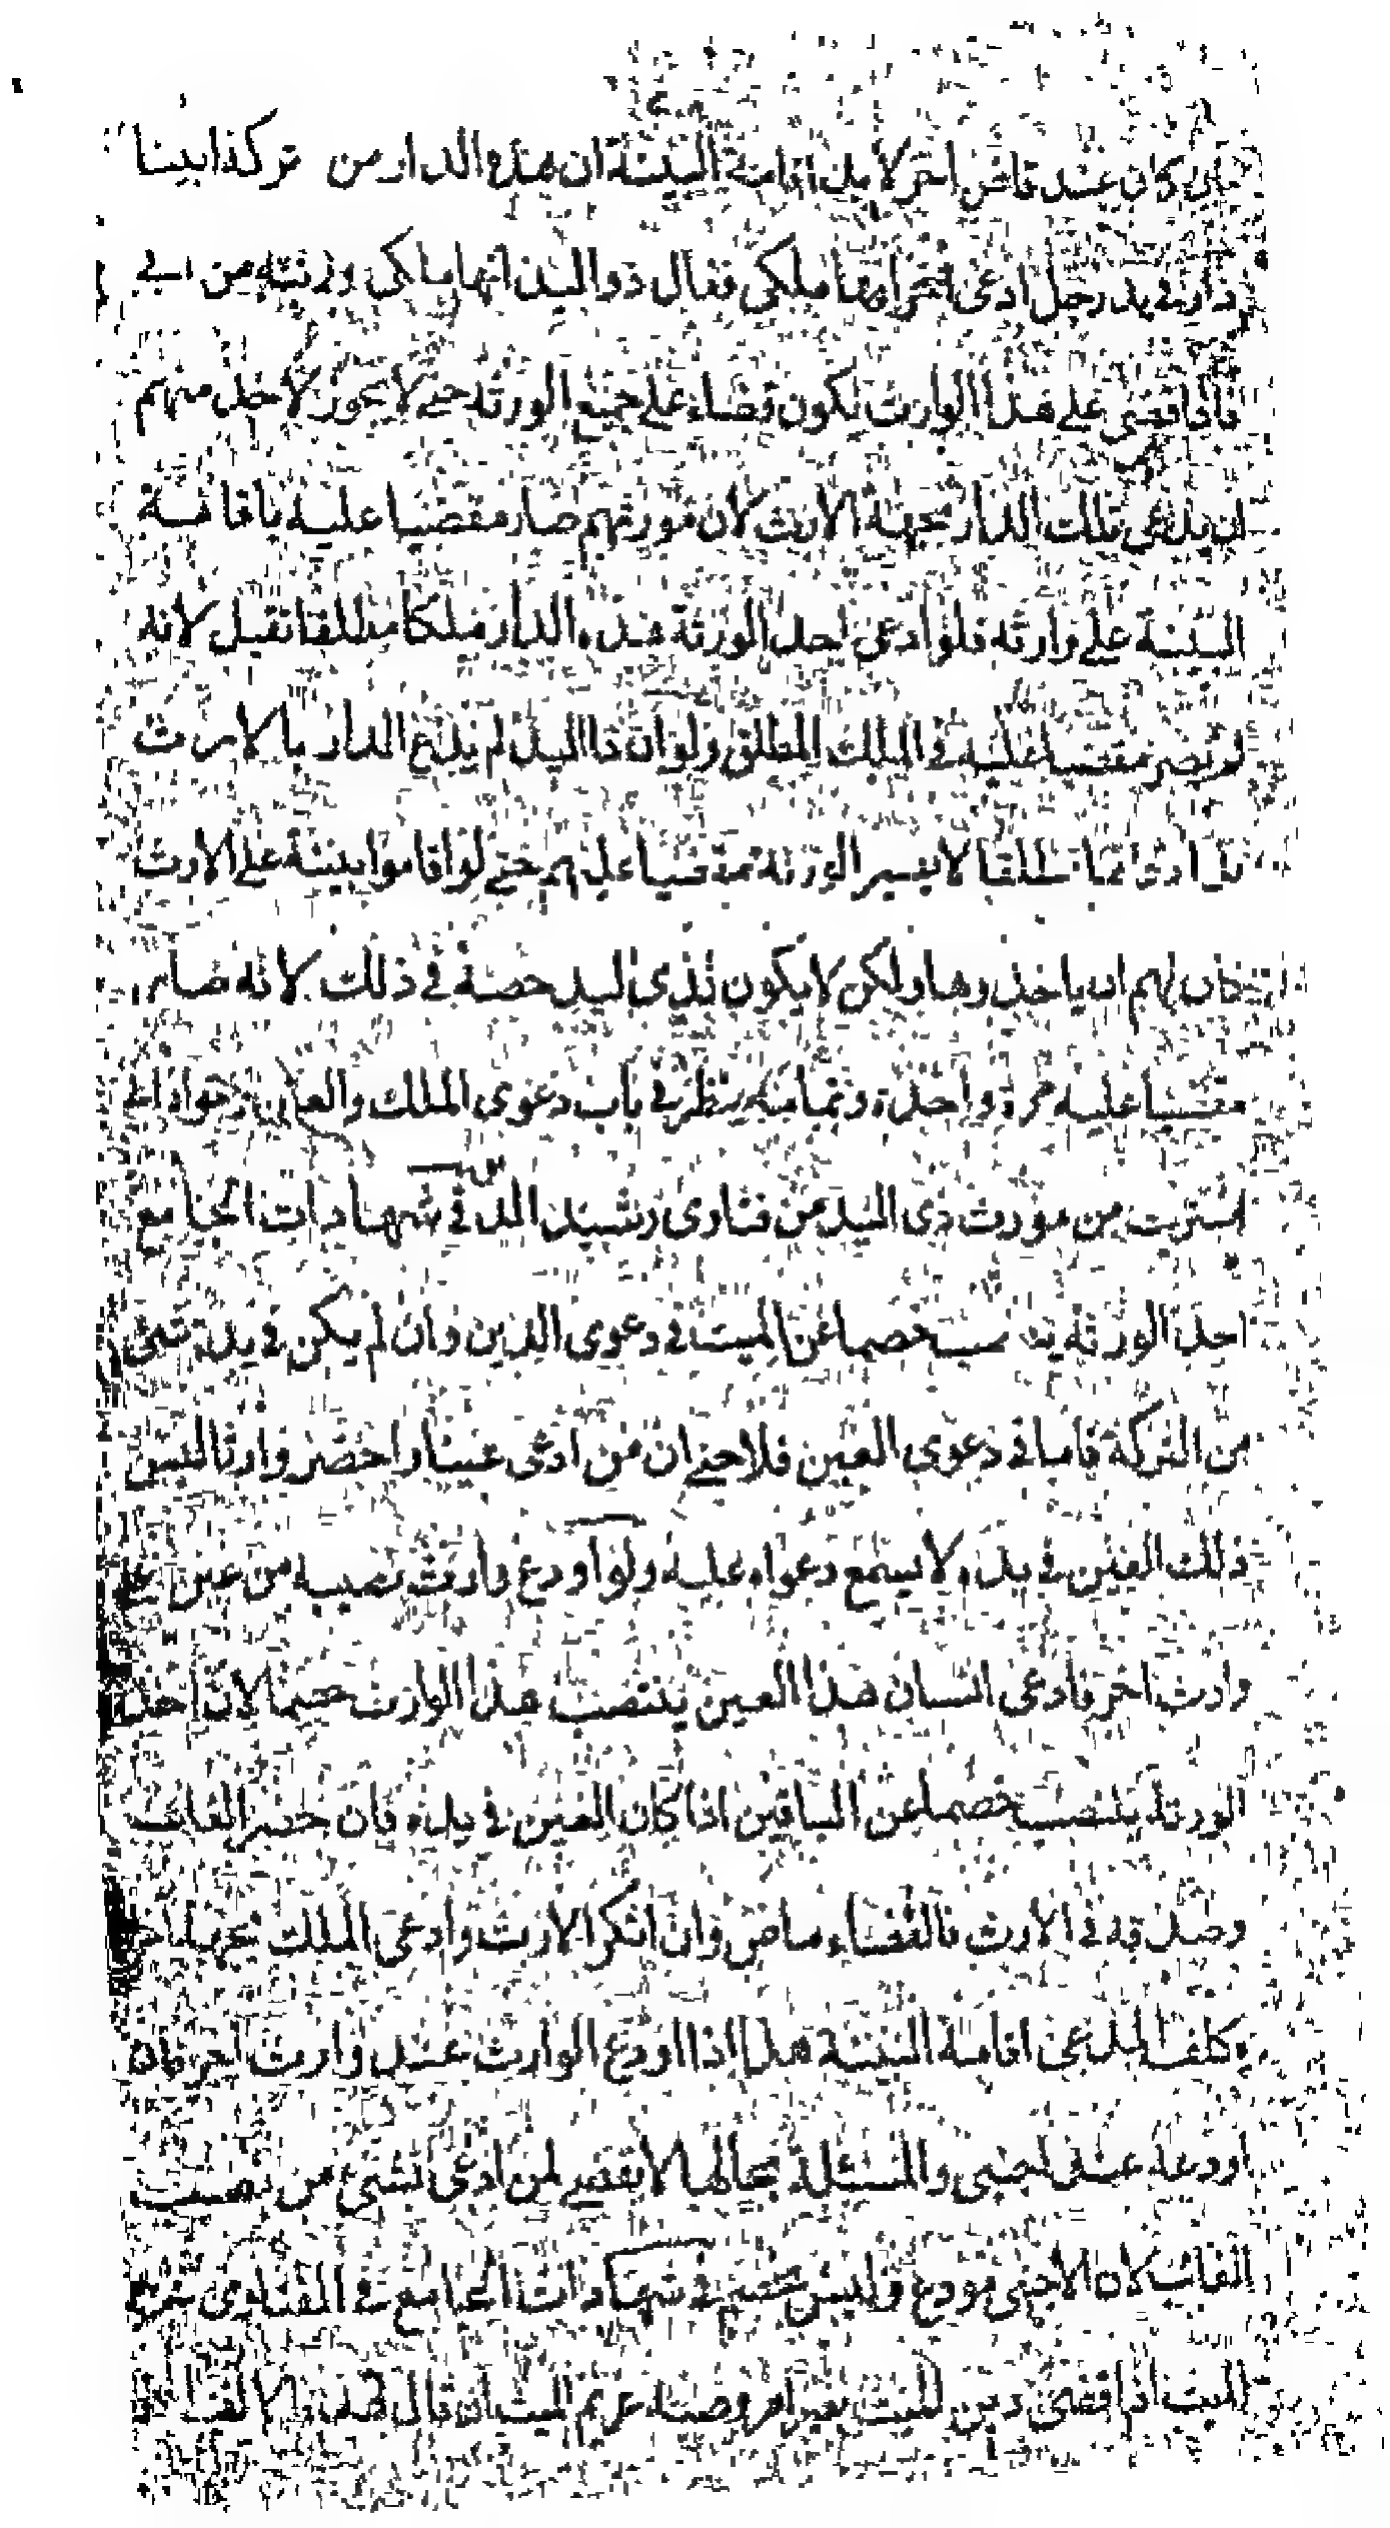 كان عند قاض اخر لابد من اقامة البينة ان هذه الدار من تركة ابينا
دار في يد رجل ادعى اخر انها ملكي فقال ذو اليد انها ملكي ورثته من ابي
فاذا قضى على هذا الوارث تكون قضاء على جميع الورثة حتى لا يجوز لاحد منهم
ان يدعى تلك الدار بجهة الارث لان مورثهم صار مقضيا عليه باقامة
البينة على وارثه فلو ادعى احد الورثة هذه الدار ملكا مطلقا تقبل لانه
لم يصر مقضيا عليه في الملك المطلق ولو ان ذا اليد لم يدع الدار بالارث
بل ادعى مطلقا لا يصير الورثة مقضيا عليهم حتى لو اقاموا بينة على الارث
كان لهم ان ياخذوها ولكن لا يكون لذى اليد حصة في ذلك لانه صار
مقضيا عليه مرة واحدة وتمامه ينظر في باب دعوى الملك
اشتريت من مورث ذى اليد من فتاوى رشيد الدين في شهادات الجامع
احد الورثة ينتصب خصما عن الميت في دعوى الدين وان لم يكن في يده شئ
من التركة فاما في دعوى العين فلا حتى ان من ادعى عينا واحضر وارثا ليس
ذلك العين في يده لا يسمع دعواه عليه ولو اودع وارث نصيبه من عين على
وارث اخر فادعى انسان هذا العين ينتصب هذا الوارث خصما لان احد
الورثة ينتصب خصما عن الباقين اذا كان العين في يده فان حضر الغائب
وصدقه في الارث فالقضاء ماض وان انكر الارث وادعى الملك
كلف المدعى اقامة البينة هذا اذا اودع الوارث عند وارث اخر فان
اودعه عند اجنبى والمسئلة بحالها لا يقضى لمن ادعى بشئ من نصيب
الغائب لان الاجنبى مودع وليس بخصم في شهادات الجامع في الفتاوى
الميت اذا قضى دين الميت بغير امر وصاء غريم الميت ان قال